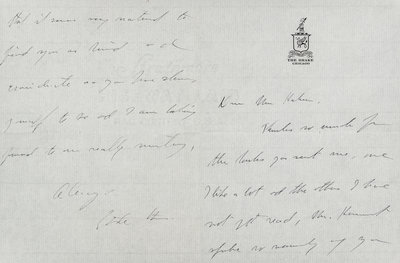 THE DRAKE
CHICAGO
Dear Mrs.
Thanks so much for
the books you sent me, one
I like a lot and the others I have
not yet read, Mr.
spoke so warmly of you
that it seems very natural to
find you as kind and
considerate as you have shown
yourself to be and I am looking
forward to our really meeting,
Always